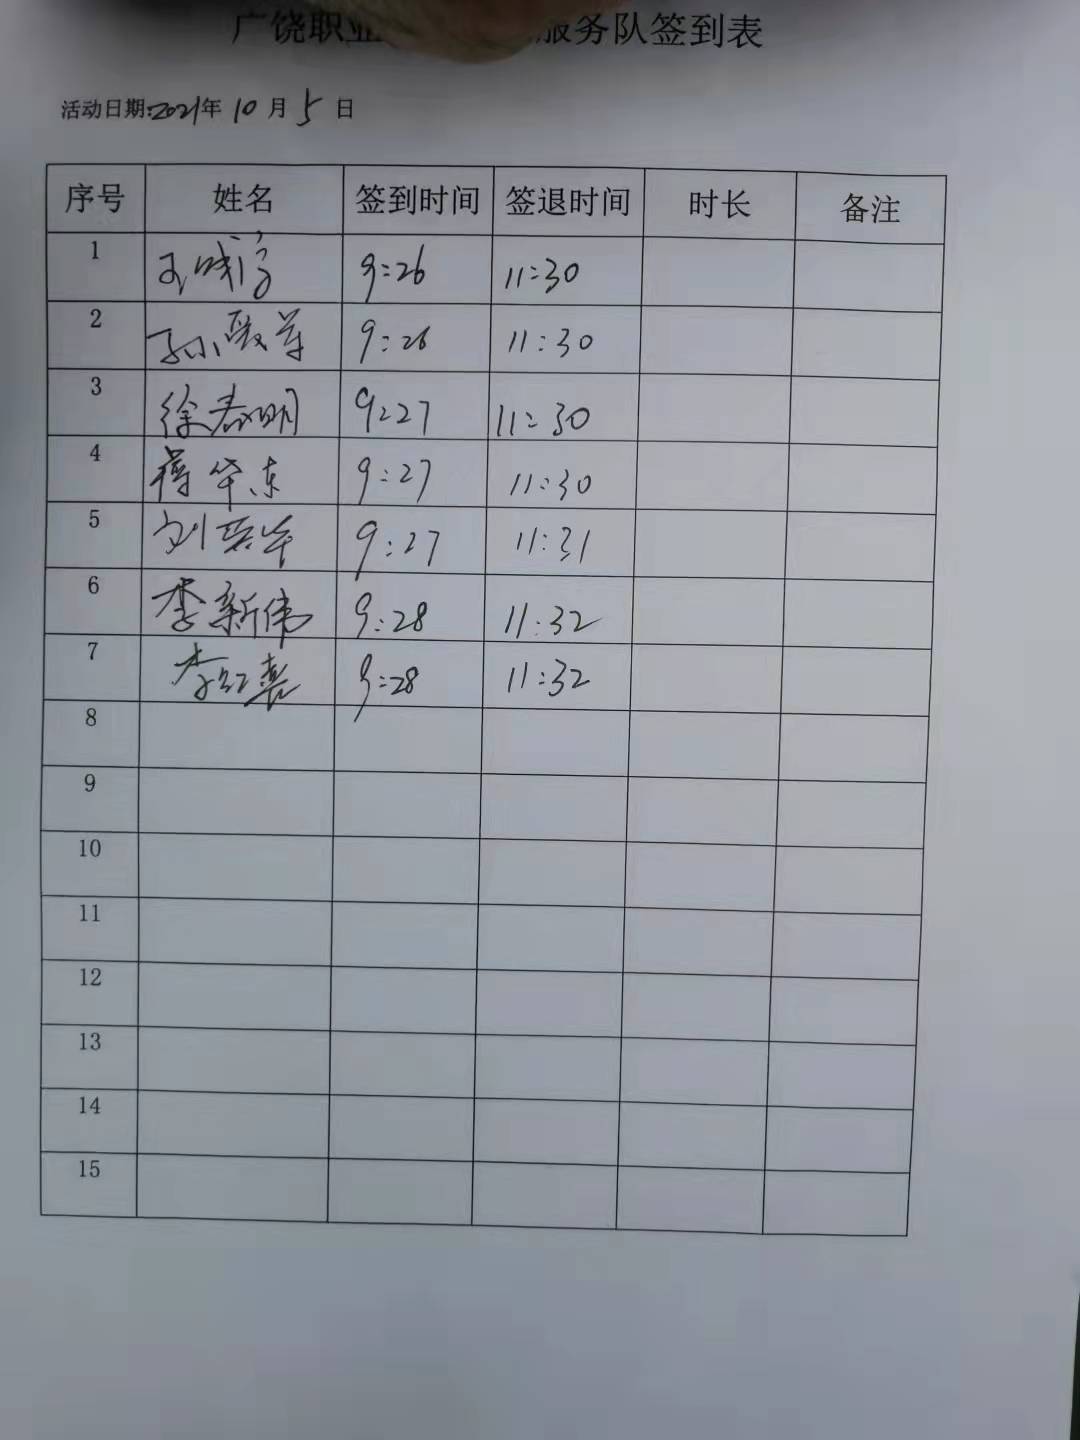 广饶职业 服务队签到表
活动日期:2021年 10 月 5 日
序号 姓名 签到时间 签退时间 时长 备注
1 9:26 11:30
2 孙 9:26 11:30
3 徐春明 9:27 11:30
4 蒋华东 9:27 11:30
5 刘 9:27 11:31
6 李新伟 9:28 11:32
7 李红 9:28 11:32
8
9
10
11
12
13
14
15